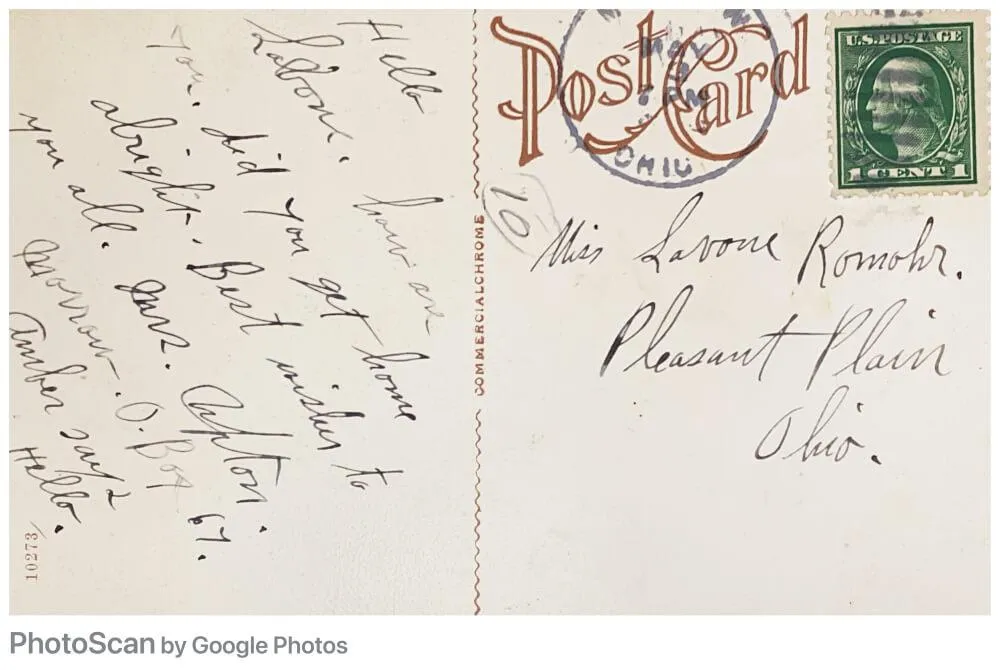 Hello
Lavone. how are
you. did you get home
alright. Best wishes to
you all. Mrs. Upton.
Morrow. O. Box 67.
Amber says
Hello.
10273
COMMERCIALCHROME
Post Card
MAY
OHIO
U.S. POSTAGE
1 CENT 1
10
Miss Lavone Romohr.
Pleasant Plain
Ohio.
PhotoScan by Google Photos